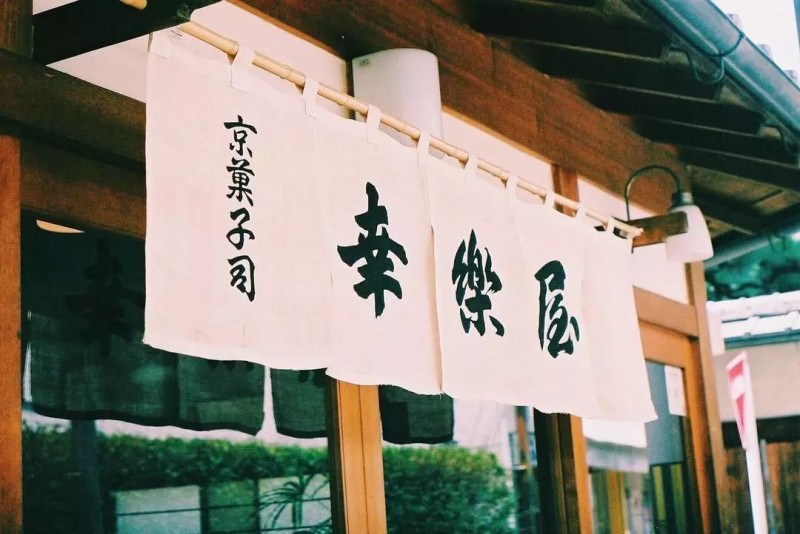 京菓子司
幸樂屋